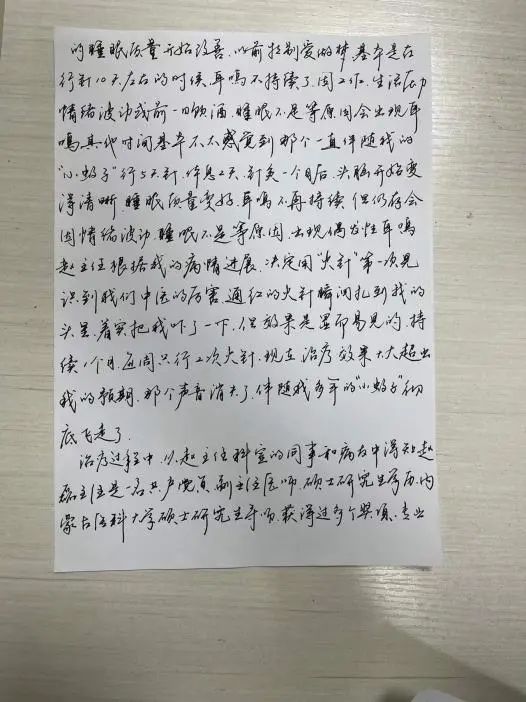 的睡眠质量开始改善，以前特别爱做梦，基本是在
行针10天左右的时候，耳鸣不持续了，因工作、生活压力
情绪波动或前一日饮酒、睡眠不足等原因会出现耳
鸣其他时间基本不不感觉到那个一直伴随我的
"小蚊子"行5天针，休息2天，针灸一个月后，头脑开始变
得清晰，睡眠质量变好，耳鸣不再持续，但仍存会
因情绪波动、睡眠不足等原因，出现偶发性耳鸣
赵主任根据我的病情进展，决定用"火针"第一次见
识到我们中医的厉害，通红的火针瞬间扎到我的
头里，着实把我吓了一下，但效果是显而易见的，持
续1个月，每周只行2次火针，现在治疗效果大大超出
我的预期，那个声音消失了，伴随我多年的"小蚊子"彻
底飞走了。
治疗过程中，从赵主任科室的同事和病友中得知赵
磊主任是一名共产党员，副主任医师，硕士研究生学历，内
蒙古医科大学硕士研究生导师，获得过多个奖项，专业